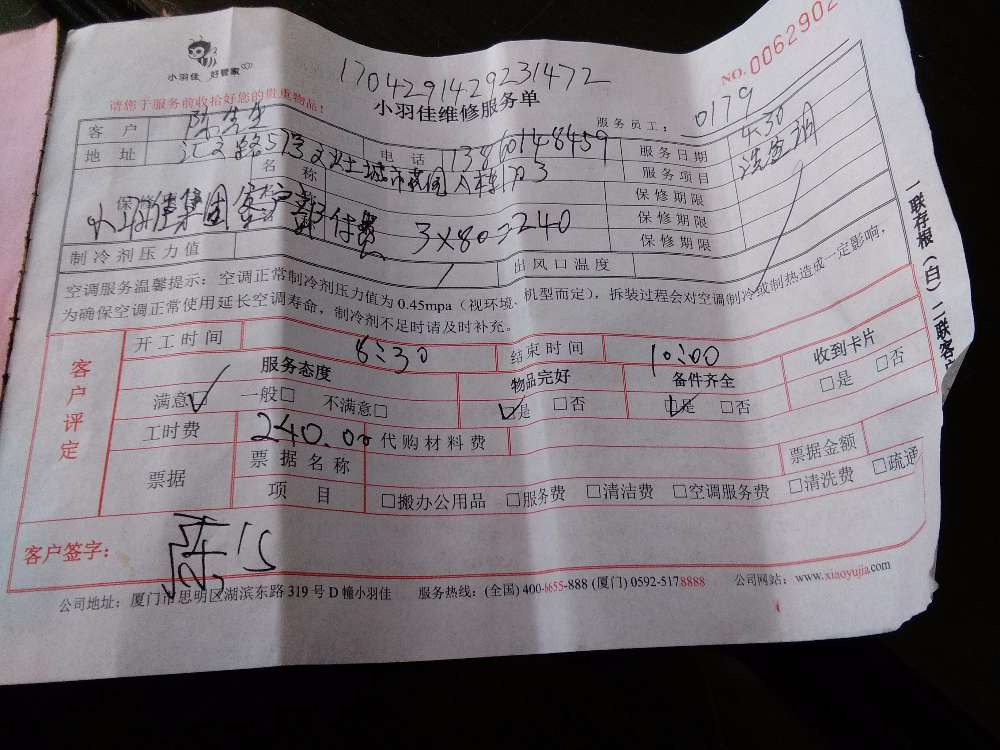 小羽佳 好管家
NO. 0062902
请您于服务前收拾好您的贵重物品!
1704291429231472
小羽佳维修服务单
服务员工: 0179
客户 陈先生 电话 13860148459 服务日期 4.30
地址 汇文路 服务项目 洗空调
名称
保修期限
保修期限
3×80=240 保修期限
制冷剂压力值 出风口温度
空调服务温馨提示:空调正常制冷剂压力值为 0.45mpa(视环境、机型而定),拆装过程会对空调制冷或制热造成一定影响,
为确保空调正常使用延长空调寿命,制冷剂不足时请及时补充。
客户评定
开工时间 8:30 结束时间 10:00 收到卡片
服务态度 物品完好 备件齐全 □是 □否
满意□ 一般□ 不满意□ □是 □否 □是 □否
工时费 240.00 代购材料费
票据 票据名称 票据金额
项目 □搬办公用品 □服务费 □清洁费 □空调服务费 □清洗费 □疏通
客户签字: 陈
公司地址:厦门市思明区湖滨东路 319 号 D 幢小羽佳 服务热线:(全国) 400-6655-888 (厦门) 0592-5178888 公司网站:www.xiaoyujia.com
一联存根(白) 二联客